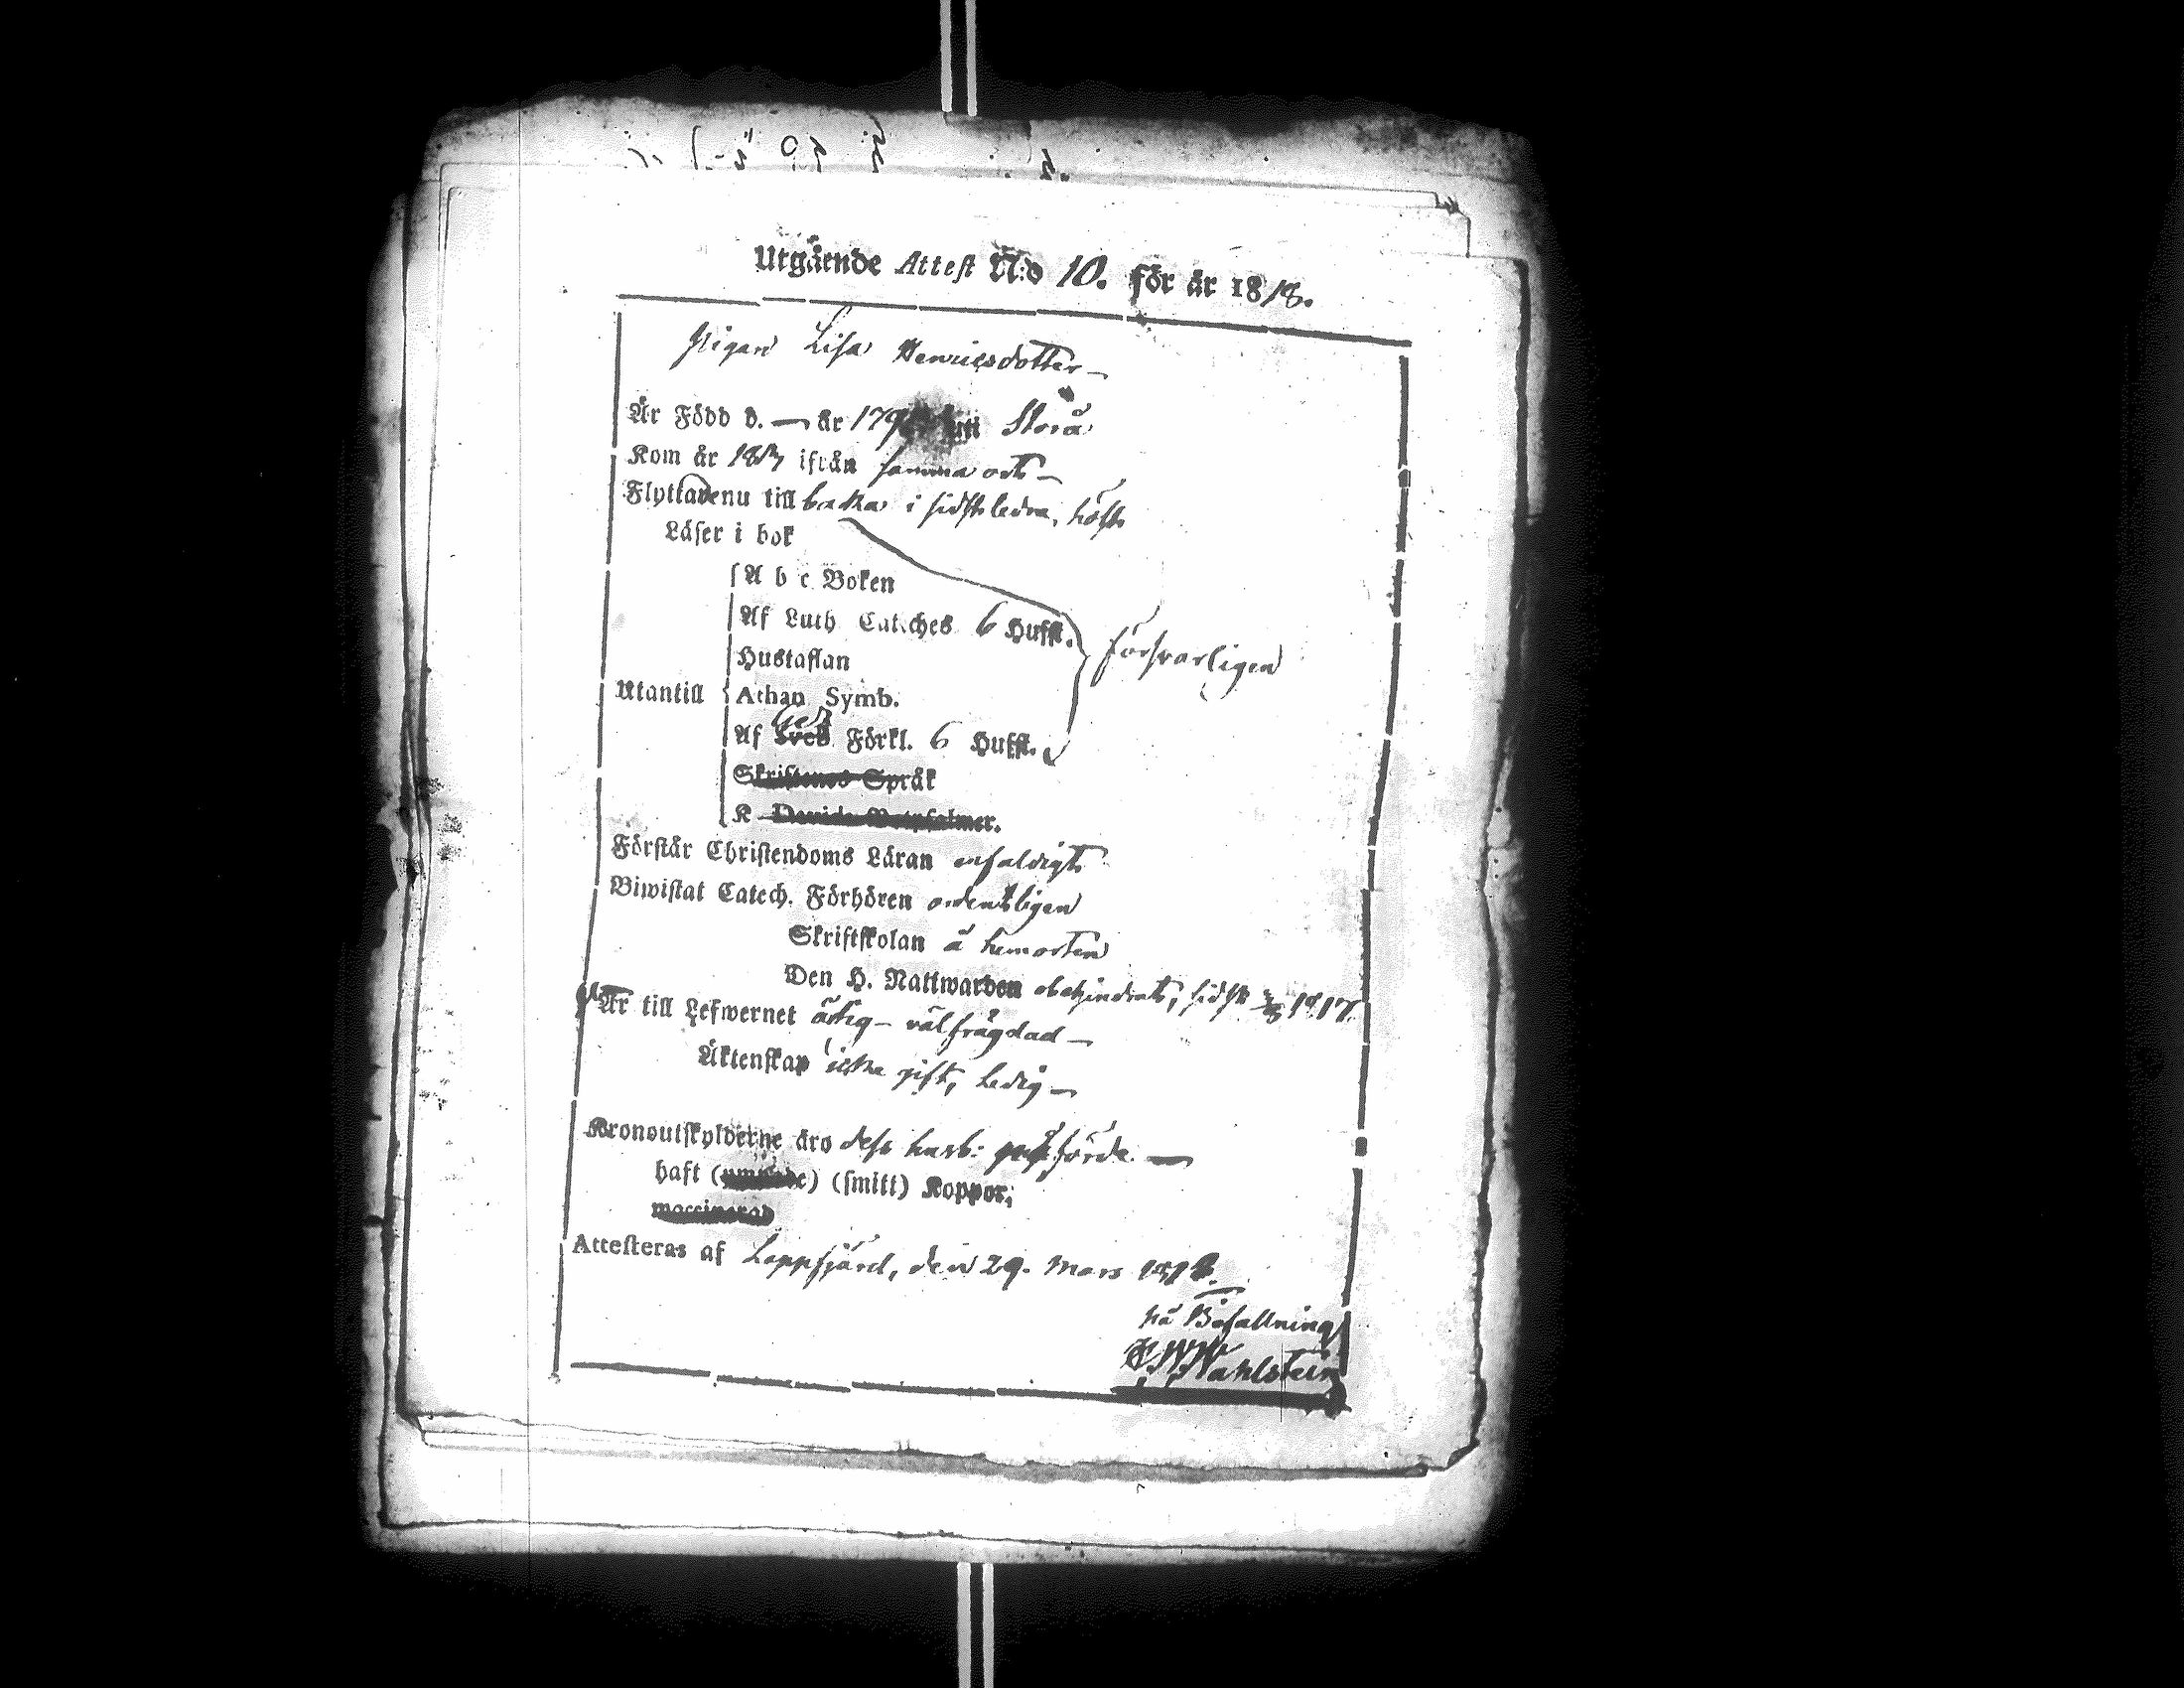 Utgående Attest N:o 10. för år 1818.
Pigan Lisa Henricsdotter
Är Född d. — år 179 uti Storå
Kom år 18 ifrån samma ort
Flyttade nu tillbaka i sidstledne höst
Läser i bok
A b c Boken
Af Luth Cateches 6 Hufst.
försvarligen
Hustaflan
Utantill
Athan Symb.
Af Förkl. 6 Hufst.
Skriftenes Språk
K Davids Botpsalmer.
Förstår Christendoms Läran enfaldigt
Biwistat Catech. Förhören ordentligen
Skriftskolan å hemorten
Den H. Nattwarden obehindrat, sidst 1817
Är till Lefwernet ärlig – välfrägdad –
Äktenskap icke gift, ledig –
Kronoutskylderne äro dess husb: påförde. —
haft () (smitt) Koppor,
waccinerad
Attesteras af Lappfjärd, den 29. Mars 1818.
på Befallning
Wahlstein